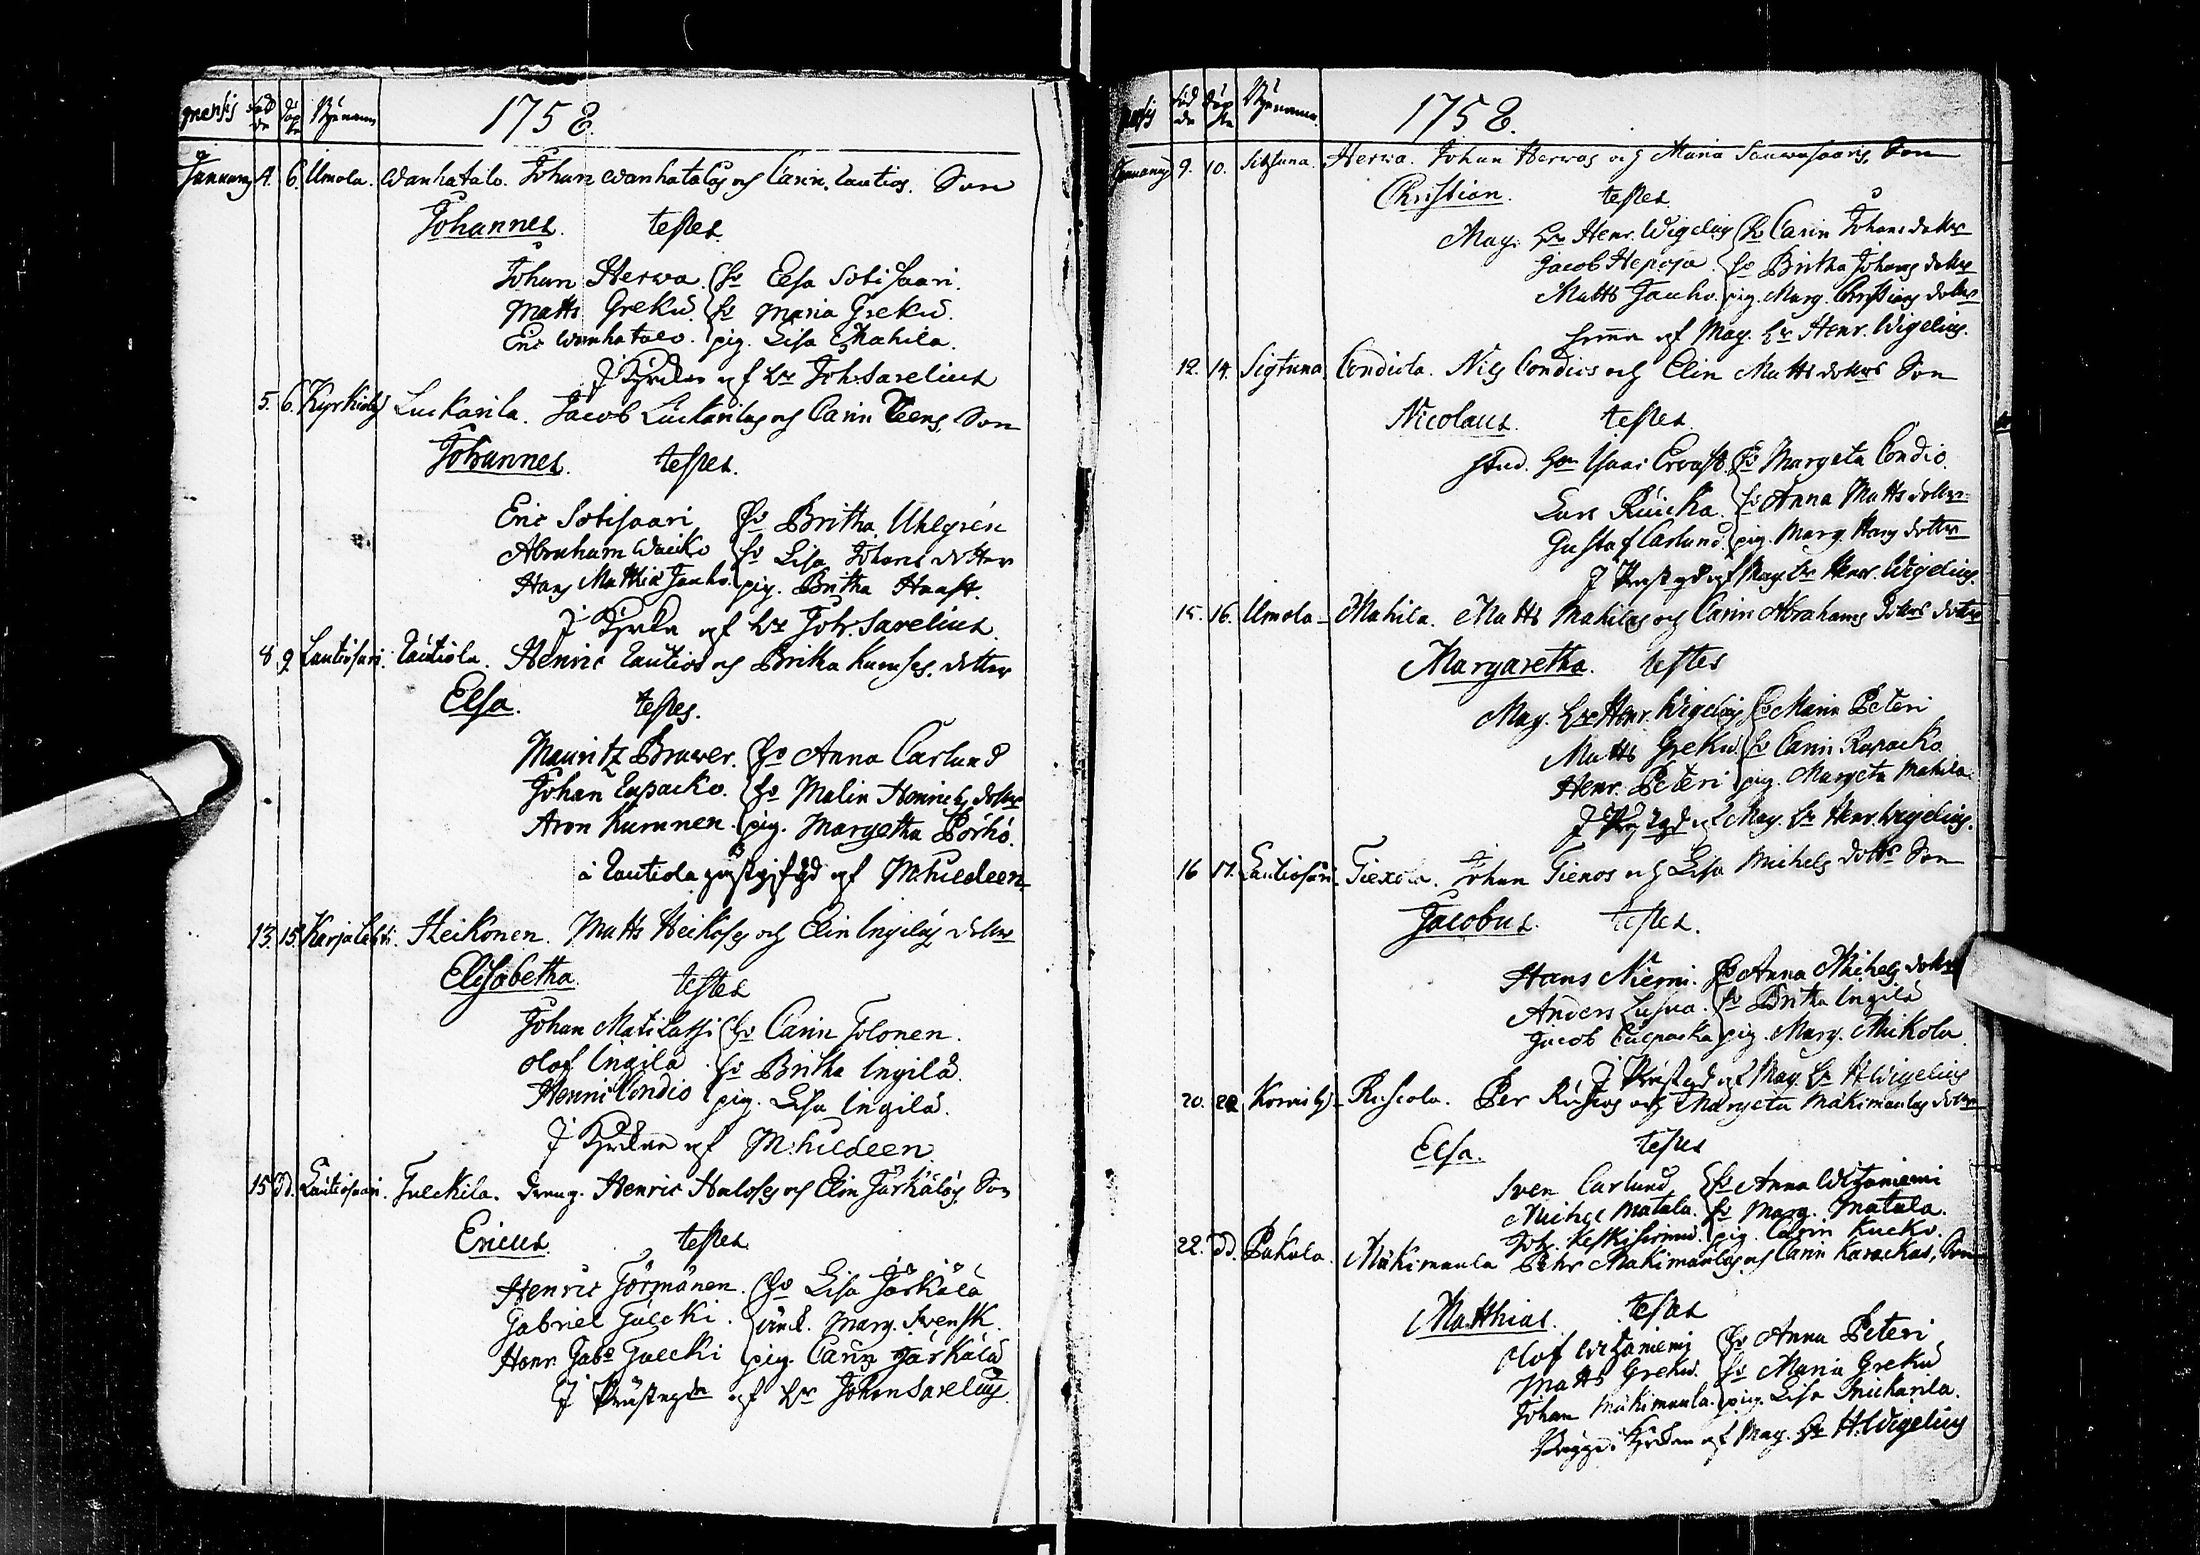 mensis född döpt Bynamn 1758.
January 4. 6. Umola. Wanhatalo. Johan Wanhatalos och Carin Lautios. Son
Johannes. testes
Johan Herwa. hu Elsa Sotisaari.
Matts Greku. hu Maria Greku.
Eric Wanhatalo. pig. Lisa Mahila.
J Kyrckan af hr Joh: Sarelius
5. 6. Luckarila. Jacob Luckarilas och Carin Teens, Son
Johannes. testes.
Eric Sotisaari hu Britha Uhlgrén
Abraham Waicko hu Lisa Johans dotter
Hans Matthiæ Jauho. pig. Britha Haast.
J Kyrckan af hr Joh. Sarelius
8 9 Lautiosari. Lautiola. Henric Lautios och Britha Kunnses. dotter
Elsa. testes.
Mauritz Bruwer. hu Anna Carlund
Johan hu Malin Henrichs dotter
Aron Kurnnen. pig. Margetha Pörhö.
a Lautiola af M: hildeen
13. 15. Karjalahti. Heikonen. Matts Heikoses och Elin Ingiläs dotter
Elisabetha. testes
Johan Matilassi hu Carin Tolonen.
Olof Ingilä. hu Britha Ingilä.
Henric Condio pig. Lisa Ingilä.
J Kyrckan af M: hildeen.
15 dd. Lautiosaari. Julckila. dreng. Henric Haloses och Elin Järkäläs Son
Ericus. testes
Henric Törmänen. hu Lisa Järkälä
Gabriel Julcki. änck. Marg. Svensk.
Henr. Gabr. Julcki pig. Carin Järkälä
J Prästegrdn af hr Johan Sarelius
mensis född döpt Bynamn. 1758.
January 9. 10. Sigtuna. Herwa. Johan Herwas och Maria Sauwosaaris, Son
Christian. testes
Mag. hr Henr. Wigelius hu Carin Johans dotter
Jacob Hepoja. hu Britha Johans dotter
Matts Jauho. pig. Marg. Christians dotter
hemma af Mag. hr Henr. Wigelius.
12. 14. Sigtuna. Condiola. Nils Condios och Elin Matts dotters Son
Nicolaus. testes.
stud. hr Isaac hu Margeta Condio.
Lars Ruicka. hu Anna Matts dotter
Gustaf Carlund. pig. Marg. Hans dotter
J Prästgrd af Mag hr Henr. Wigelius.
15. 16. Umola Mahila. Matts Mahilas och Carin Abrahams dotters dotter
Margaretha. testes
Mag. hr Henr. Wigelius hu Maria Peteri
Matts Greku. hu Carin
Henr. Peteri pig. Margeta Mahila.
J Prästgrd af Mag. hr Henr. Wigelius.
16 17. Lautiosari Tiexola. Johan Tienos och Lisa Michels dotters Son
Jacobus. testes.
Hans Niemi. hu Anna Michels dotter
Anders hu Britha Ingilä
Jacob pig. Marg. Mickola.
J Prästgrd af Mag. hr H. Wigelius
20. 22 Ruscola. Per Ruskos och Margeta Mäkimaulas dotter
Elsa. testes
Sven Carlund hu Anna Witzaniemi
Michel Matala. hu Marg. Matala.
Joh. pig. Carin Kucko.
22. dd. Pakola. Mäkimaula Pehr Mäkimaulas och Carin Karackas, Son
Matthias. testes
Olof Witzaniemi hu Anna Peteri
Matts Greku. hu Maria Greku
Johan Mäkimaula. pig. Lisa
Begge i Kyrckan af Mag. hr H. Wigelius